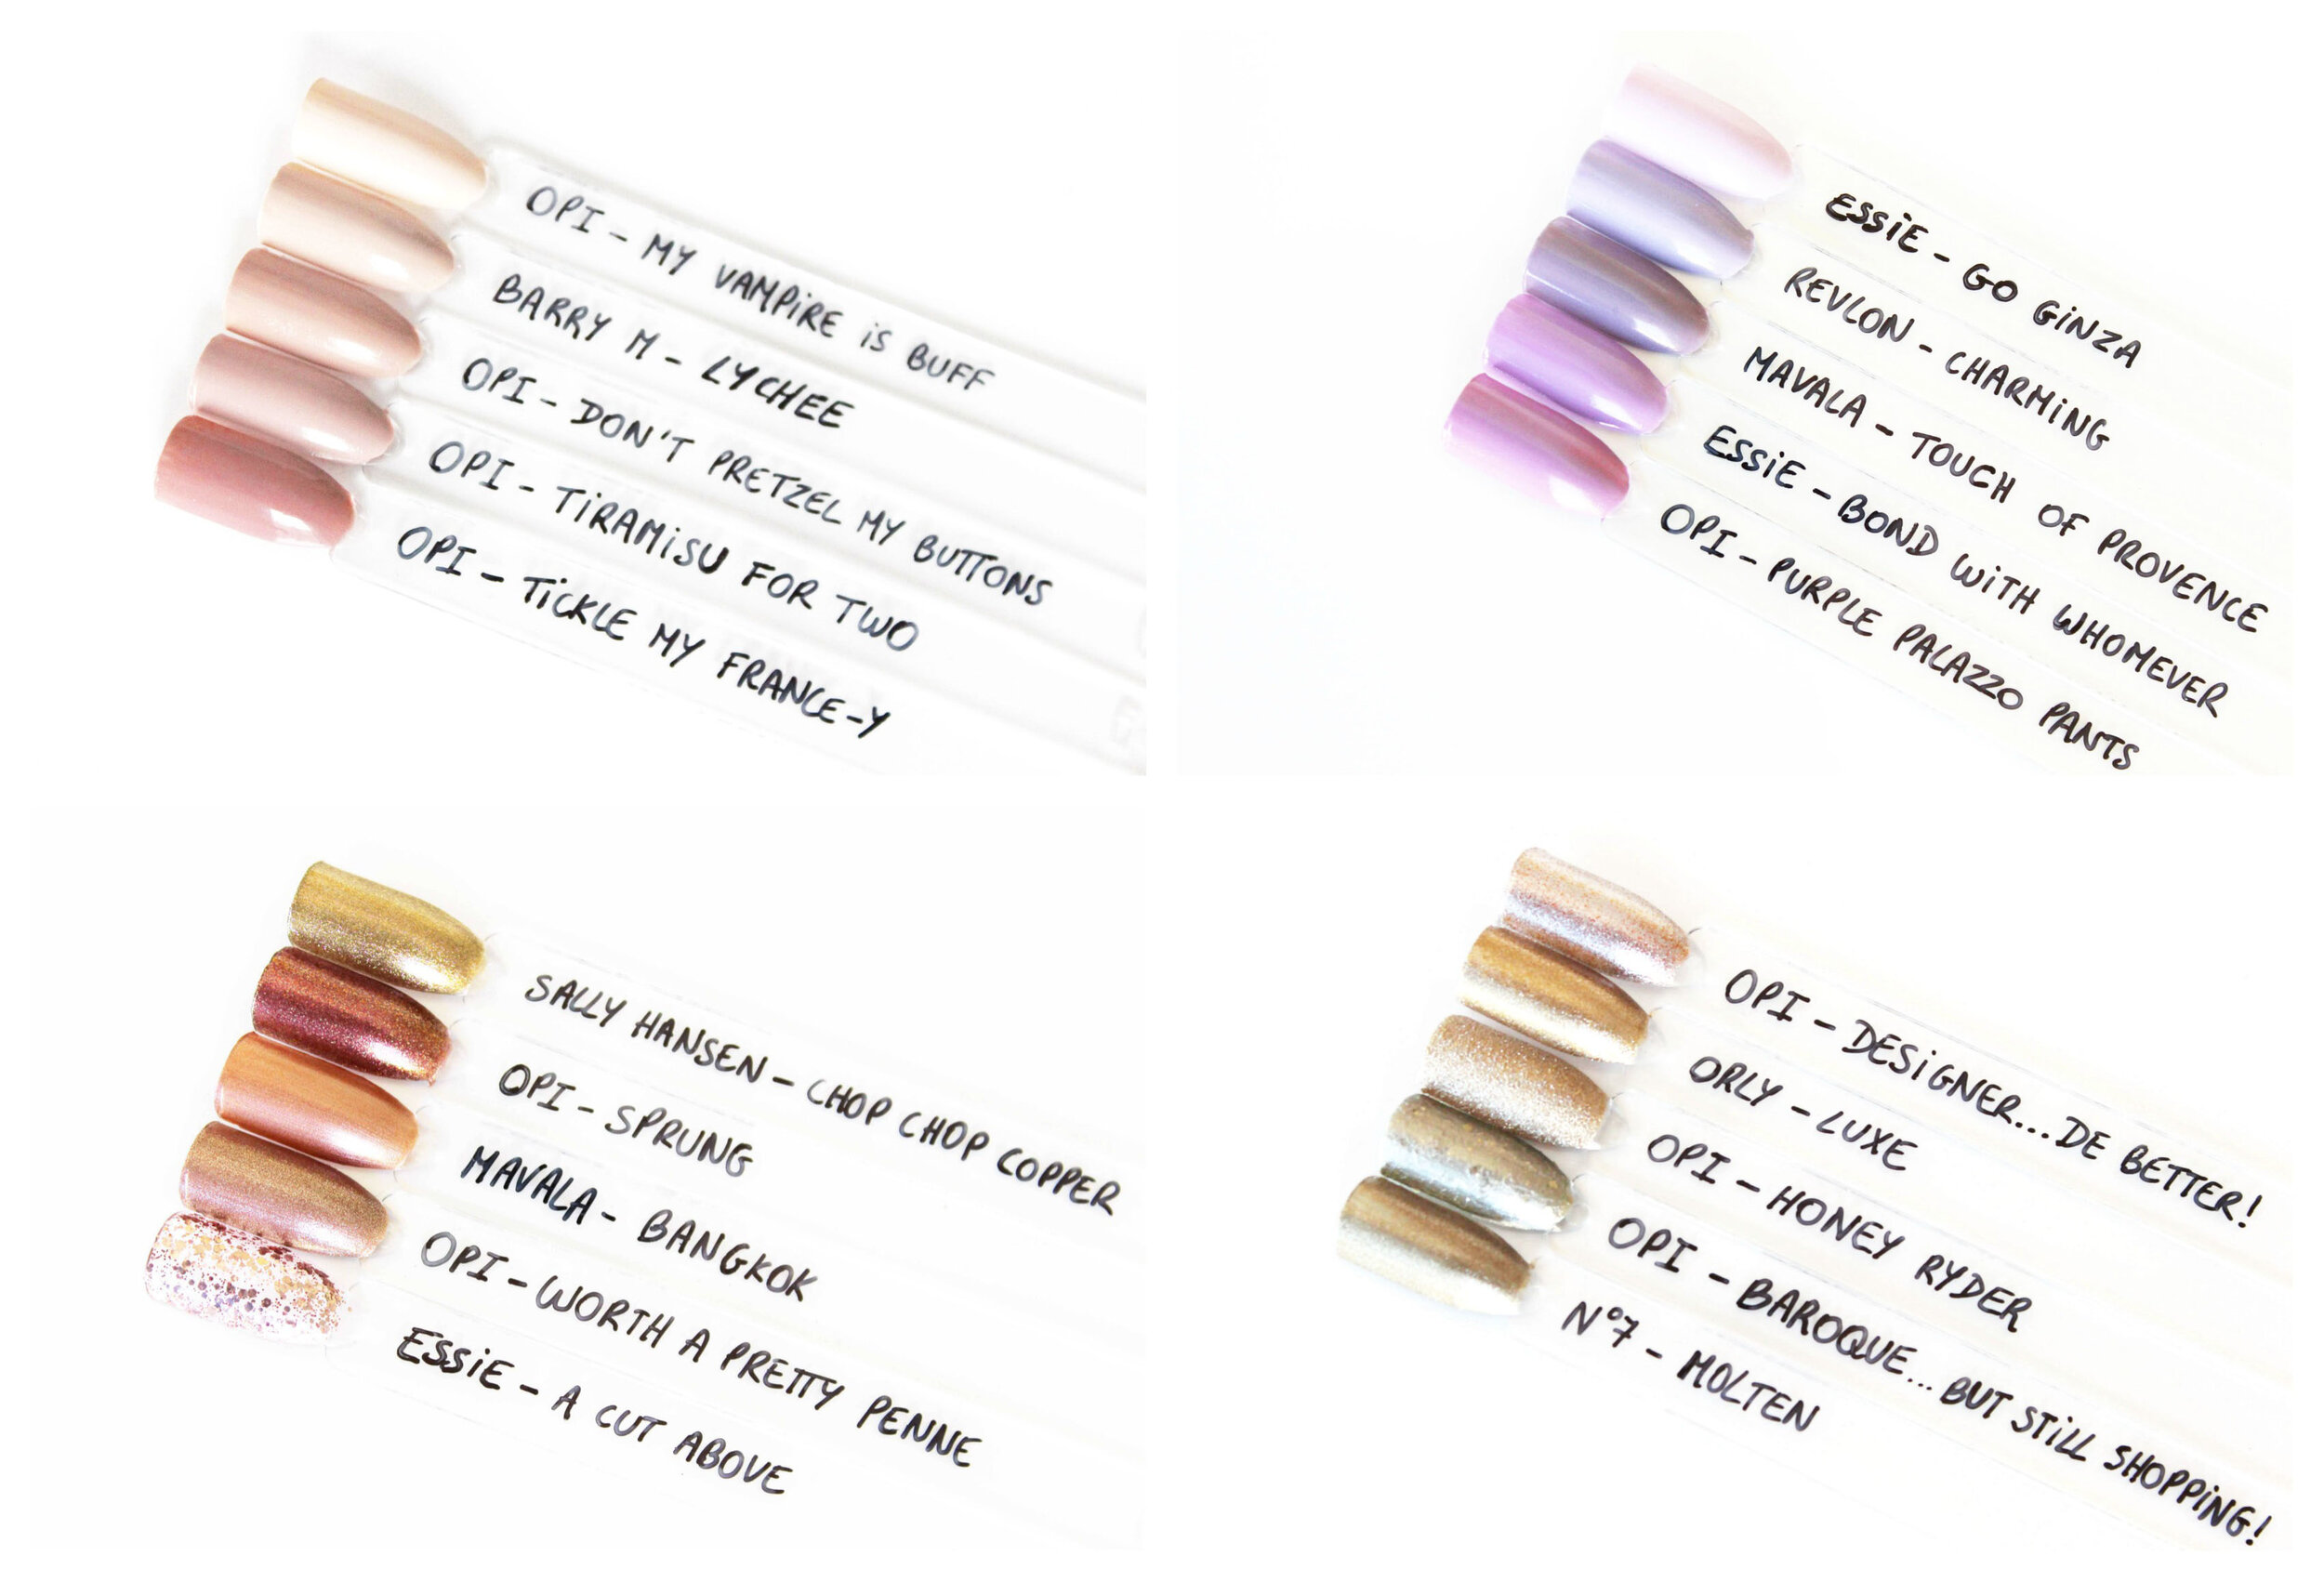 OPI - MY VAMPiRE iS BUFF
BARRY M - LYCHEE
OPI - DON'T PRETZEL MY BUTTONS
OPI - TiRAMiSU FOR TWO
OPI - TiCKLE MY FRANCE-Y
ESSiE - GO GiNZA
REVLON - CHARMiNG
MAVALA - TOUCH OF PROVENCE
ESSiE - BOND WiTH WHOMEVER
OPI - PURPLE PALAZZO PANTS
SALLY HANSEN - CHOP CHOP COPPER
OPI - SPRUNG
MAVALA - BANGKOK
OPI - WORTH A PRETTY PENNE
ESSiE - A CUT ABOVE
OPI - DESiGNER...DE BETTER!
ORLY - LUXE
OPI - HONEY RYDER
OPI - BAROQUE... BUT STiLL SHOPPiNG!
N°7 - MOLTEN